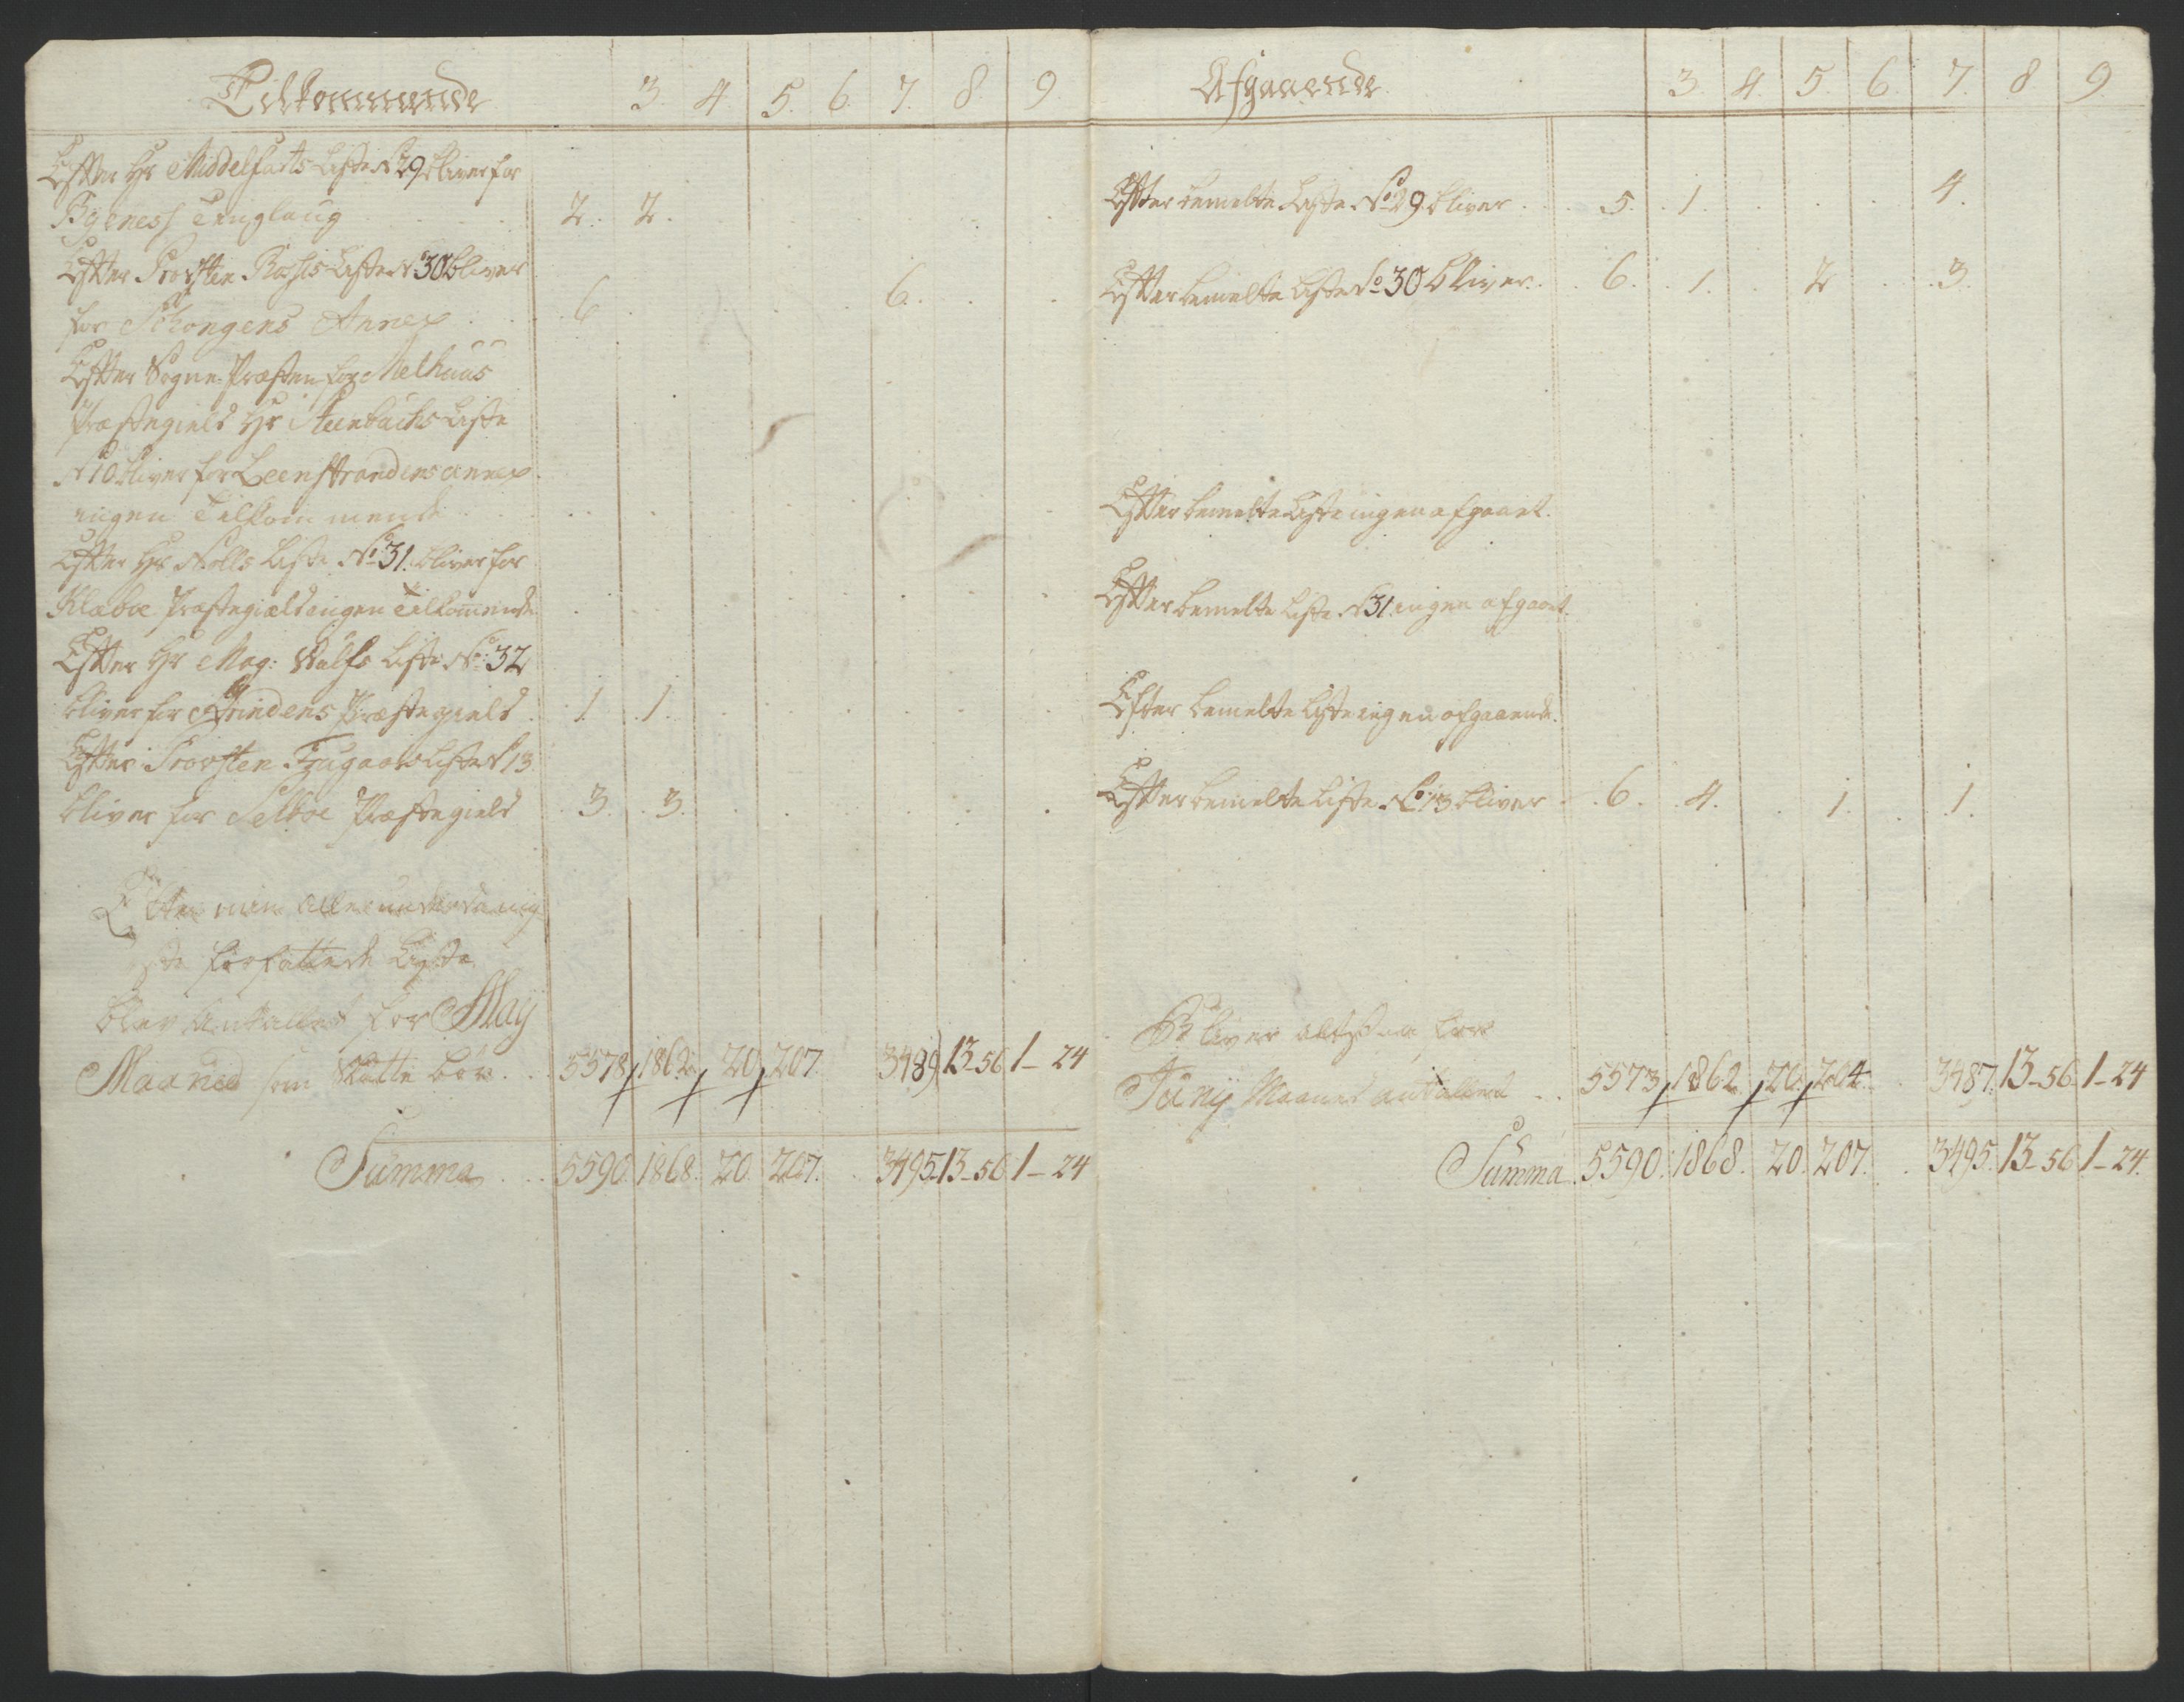 Tilkommende 3. 4. 5. 6. 7. 8. 9.
Efter Hr Middelfarts Liste No 29 bliver for
Byeness Tinglaug 2. 2.
Efter Provsten Liste No 30 bliver
for Annex 6. 6.
Efter Sogne-Præsten for Melhuus
Præstegield Hr Steenbuchs Liste
No 10 bliver for Leenstrandens annex
ingen Tilkommende
Efter Hr Nolls Liste No 31. bliver for
Klæboe Præstegield ingen Tilkommende
Efter Hr Mag: Wulfs Liste No: 32
bliver for Præstegield 1. 1.
Efter Provsten Liste No 13
bliver for Selboe Præstegield 3. 3.
Efter min allerunderdanig-
ste forfattede Liste
blev Antallet for Maij
Maaned som Skatte bør 5578. 1862. 20. 207. 3489. 13-56 1-24
Summa 5590. 1868. 20. 207. 3495. 13-56 1-24
Afgaaende 3. 4. 5. 6. 7. 8. 9.
Efter bemelte Liste No 29. bliver 5. 1. 4.
Efter bemelte Liste No 30 bliver 6. 1. 2 3.
Efter bemelte Liste ingen afgaaet.
Efter bemelte Liste No 31. ingen afgaaet.
Efter bemelte Liste ingen afgaaende.
Efter bemelte Liste No 13 bliver 6. 4. 1. 1.
Bliver altsaa for
Junij Maaned antallet 5573. 1862. 20. 204. 3487. 13-56 1-24
Summa 5590. 1868. 20. 207. 3495. 13-56 1-24.